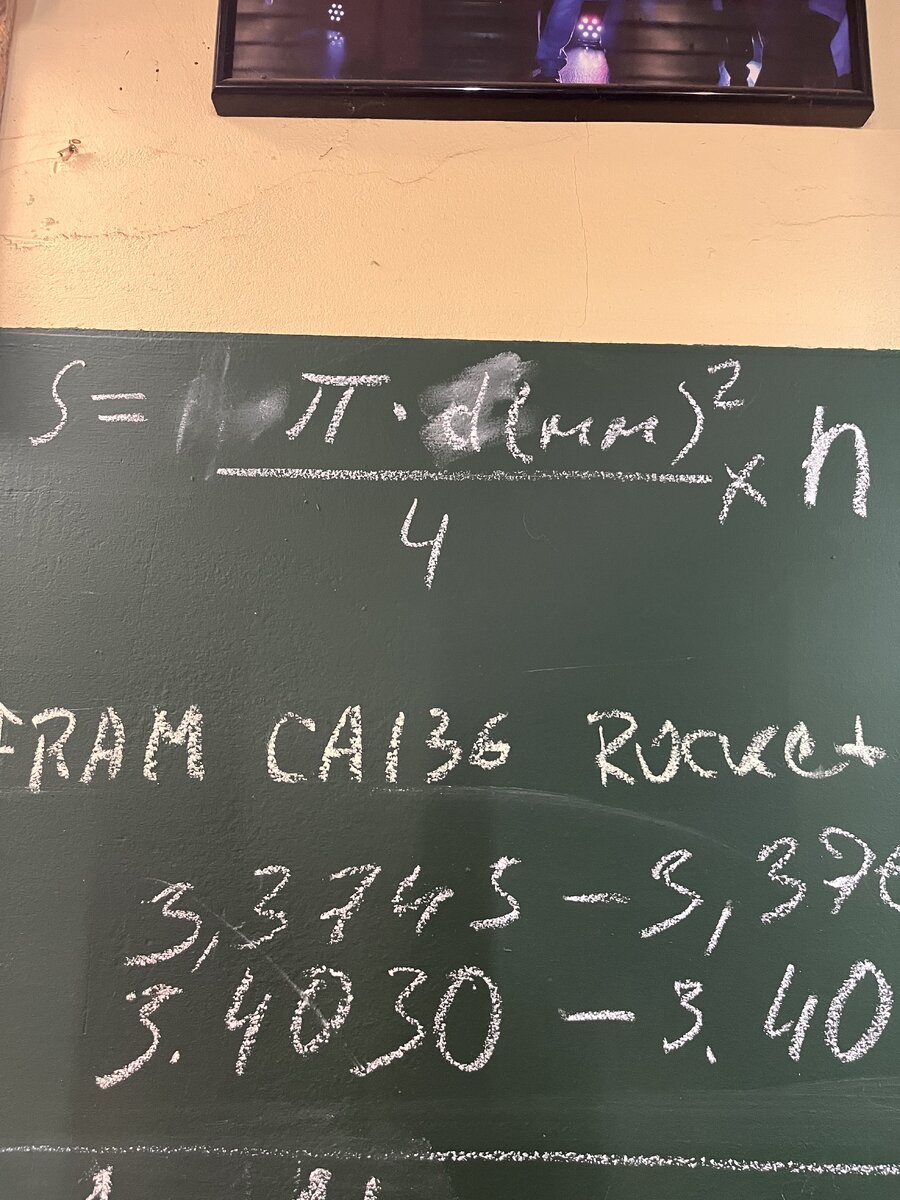 S = π · d(мм)² × n
4
FRAM CA136 Rocket
3,3745 – 3,376
3.4030 – 3.40